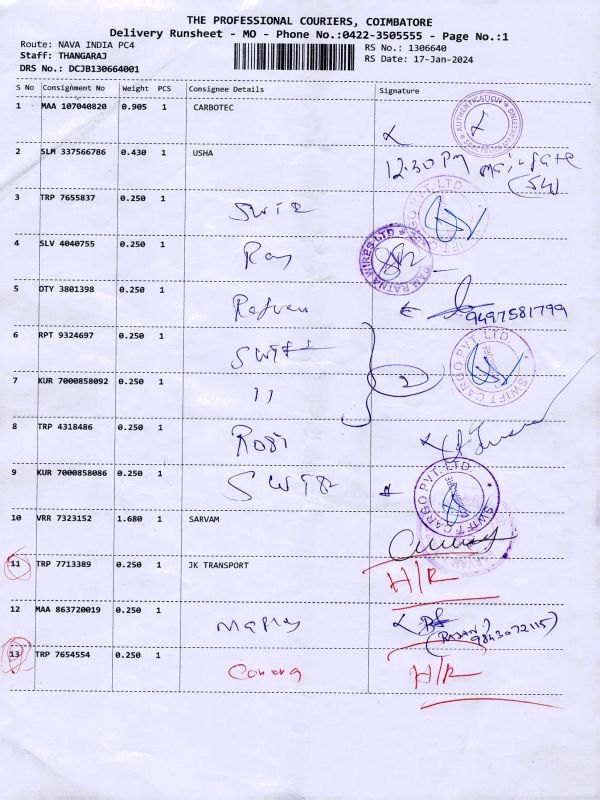 THE PROFESSIONAL COURIERS, COIMBATORE
Delivery Runsheet - MO - Phone No.:0422-3505555 - Page No.:1
Route: NAVA INDIA PC4
RS No.: 1306640
Staff: THANGARAJ
RS Date: 17-Jan-2024
DRS No.: DCJB130664001
S No Consignment No Weight PCS Consignee Details Signature
1 MAA 107040820 0.905 1 CARBOTEC
AUTHENTICATION
2 SLM 337566786 0.430 1 USHA 12.30 PM
3 TRP 7655837 0.250 1 Swift
4 SLV 4040755 0.250 1 Ram
RAM RATNA WIRES LTD
5 OTY 3801398 0.250 1 9497581799
6 RPT 9324697 0.250 1 Swift
2
SWIFT CARGO PVT. LTD
7 KUR 7000858092 0.250 1 11
8 TRP 4318486 0.250 1 Rosi
9 KUR 7000858086 0.250 1 Swift
SWIFT CARGO PVT. LTD
10 VRR 7323152 1.680 1 SARVAM
11 TRP 7713389 0.250 1 JK TRANSPORT H/R
12 MAA 863720019 0.250 1
(RAJAN)
9843072115)
13 TRP 7654554 0.250 1 H/R